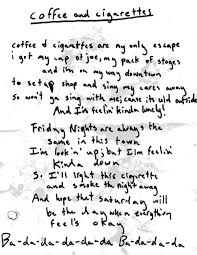 coffee and cigarettes
coffee & cigarettes are my only escape
i got my cup of joe, my pack of stoges
and i'm on my way downtown
to setup shop and sing my cares away
So won't ya sing with me, cause its cold outside
And I'm feelin' kinda lonely!
Friday Nights are always the
same in this town
I'm lookin' up, but I'm feelin'
Kinda down
So, I'll light this cigarette
and smoke the night away
And hope that saturday will
be the day when everything
feels okay
Ba-da-da-da-da-da Ba-da-da-da